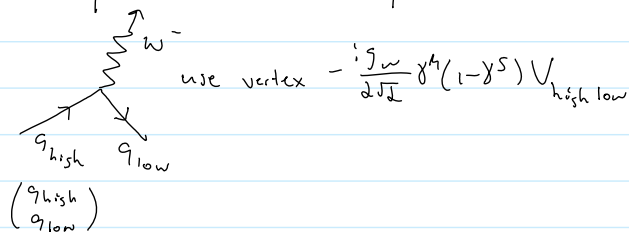 W⁻
use vertex - i g_w / 2√2 γ^μ (1-γ^5) V_high low
q_high q_low
(q_high
q_low)